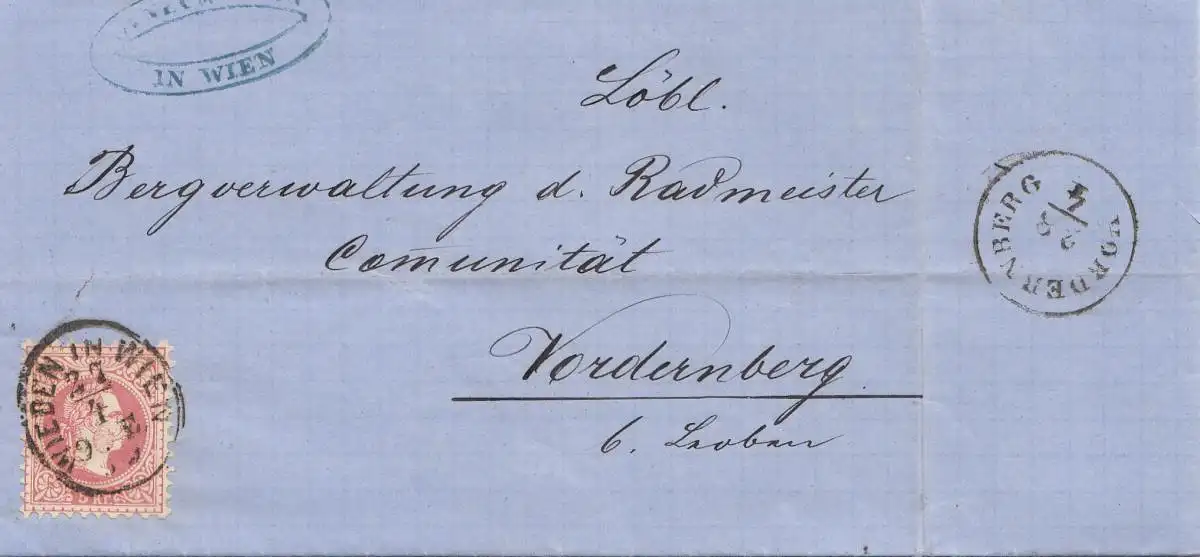 IN WIEN
Löbl.
Bergverwaltung d. Radmeister
Com̅unität
Vordernberg
b. Leoben
VORDERNBERG
WIEDEN IN WIEN